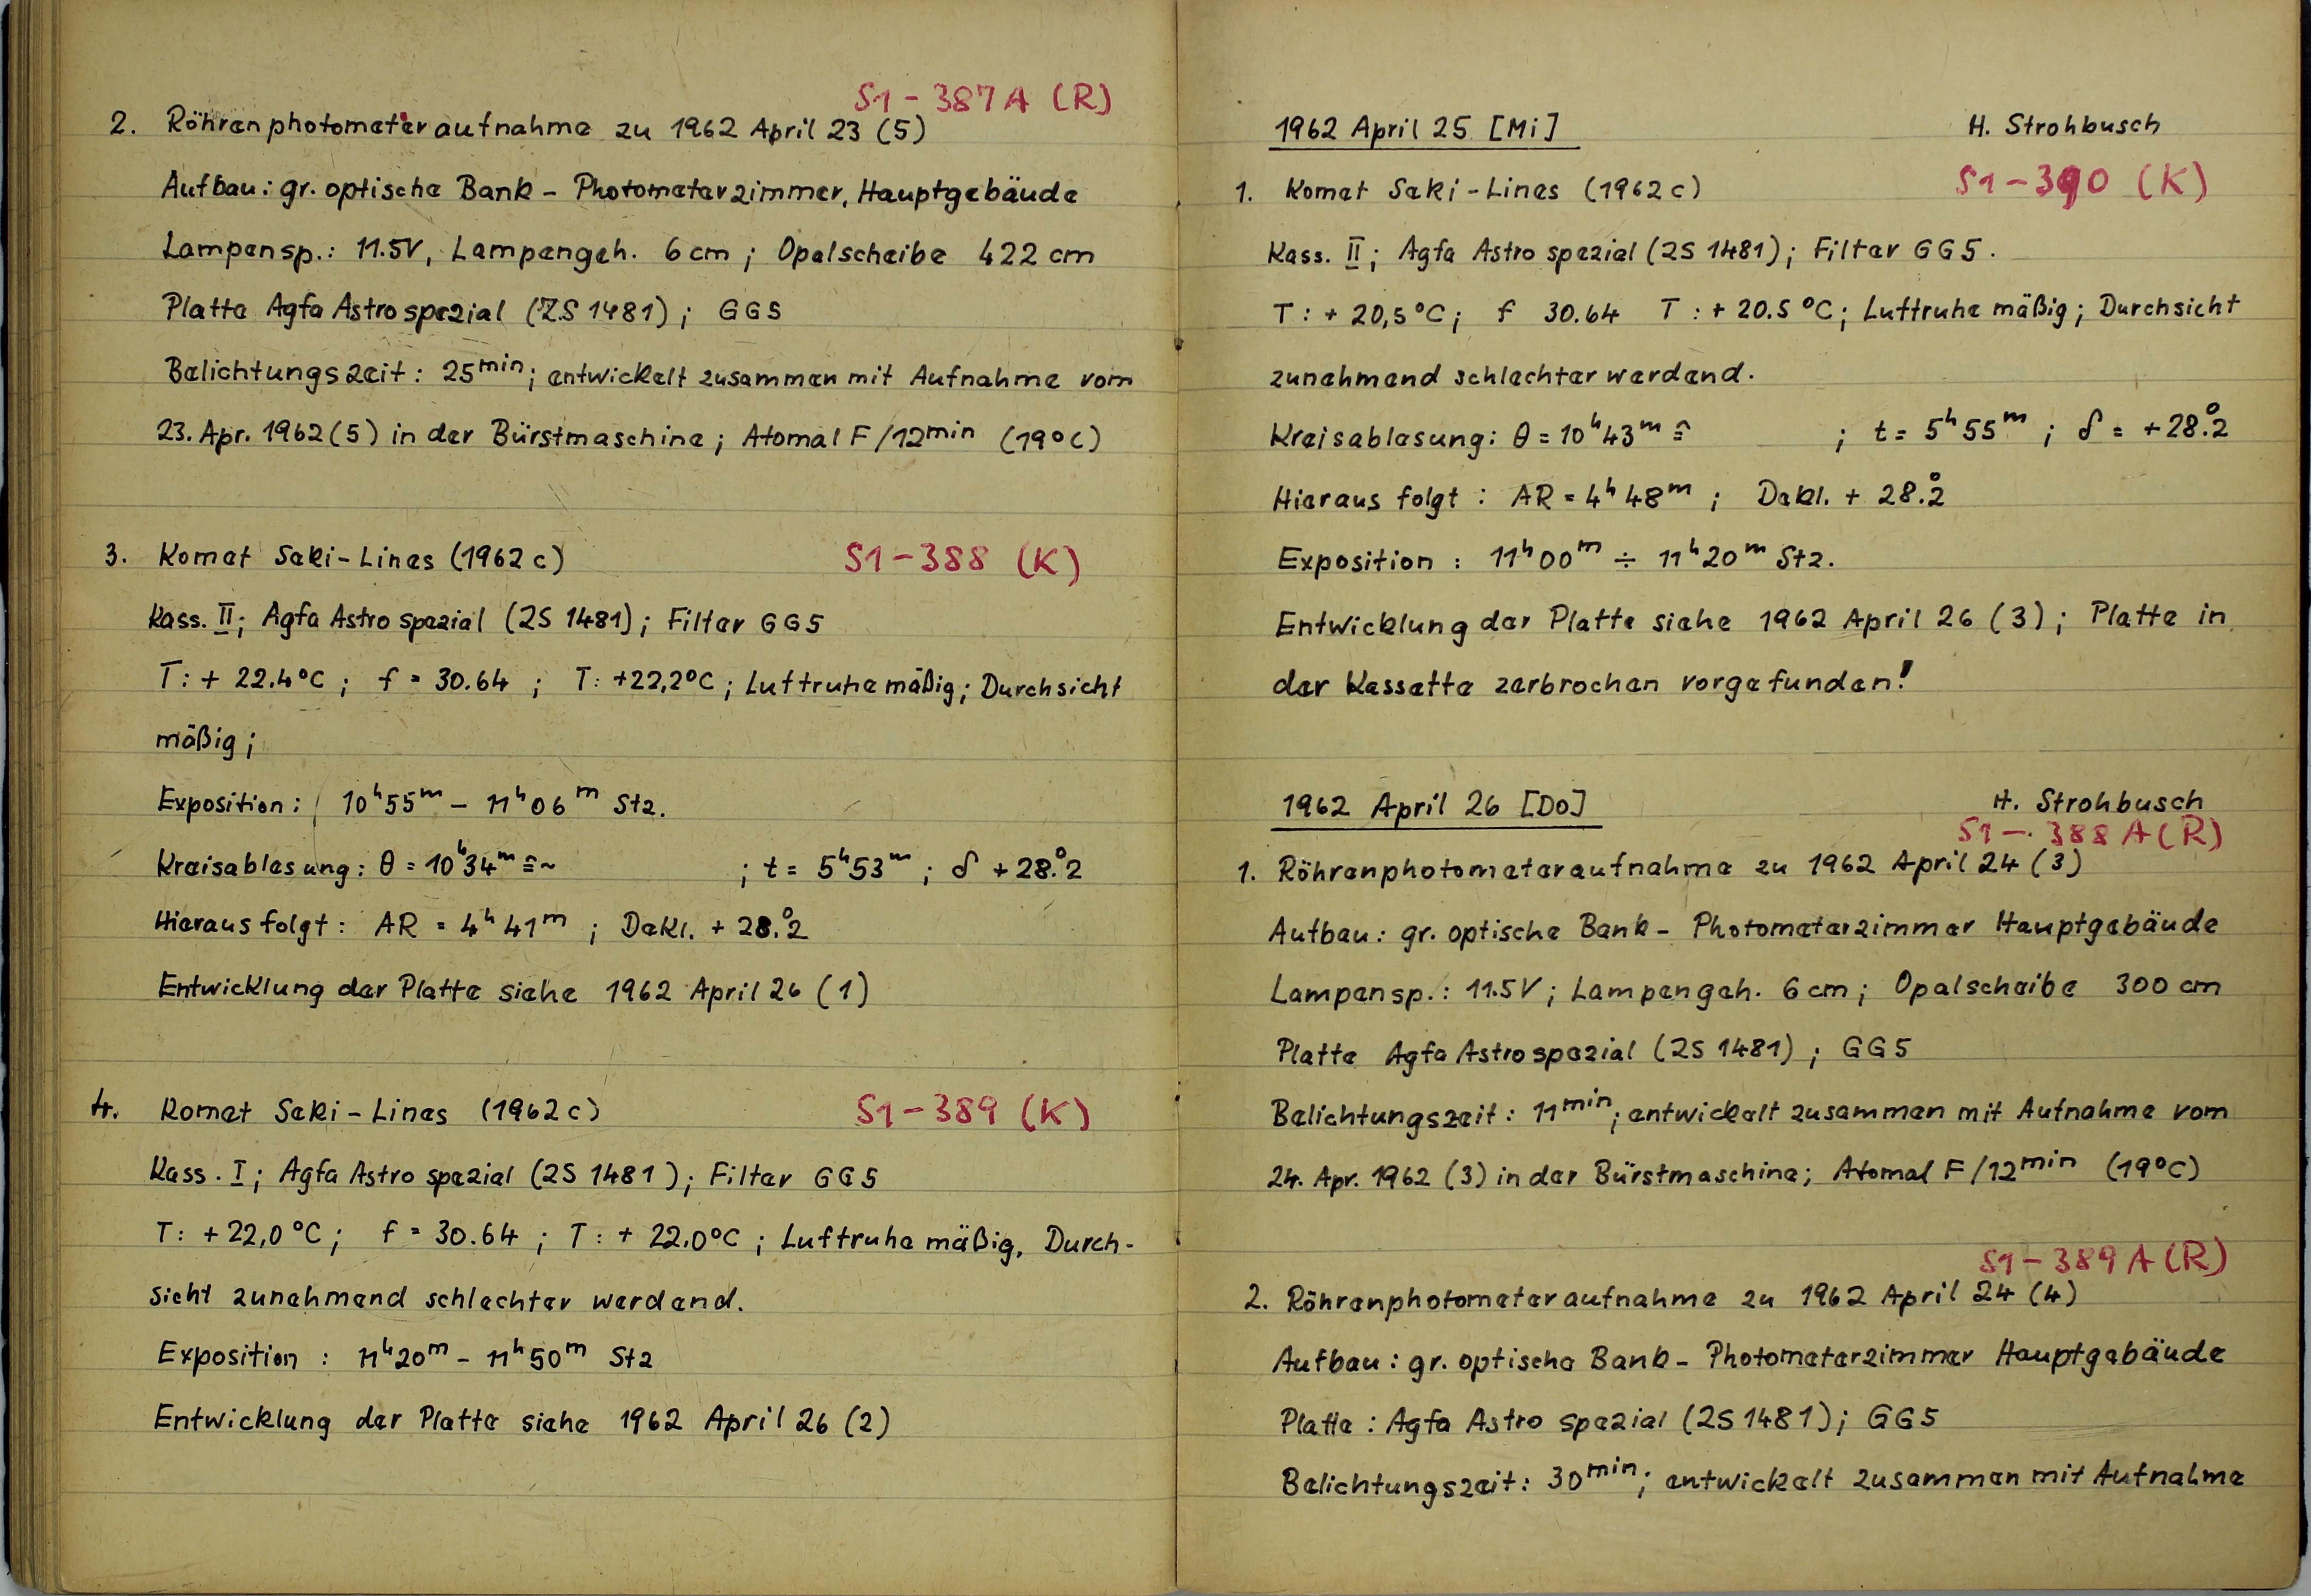 S1-387A (R)
2. Röhrenphotometeraufnahme zu 1962 April 23 (5)
Aufbau: gr. optische Bank - Photometerzimmer, Hauptgebäude
Lampensp.: 11.5V, Lampengeh. 6 cm ; Opalscheibe 422 cm
Platte Agfa Astro spezial (ZS 1481) ; GG5
Belichtungszeit: 25min; entwickelt zusammen mit Aufnahme vom
23. Apr. 1962 (5) in der Bürstmaschine ; Atomal F /12min (19°C)
3. Komet Seki-Lines (1962 c) S1-388 (K)
Kass. II; Agfa Astro spezial (ZS 1481) ; Filter GG5
T: + 22.4°C ; f = 30.64 ; T: +22,2°C ; Luftruhe mäßig ; Durchsicht
mäßig ;
Exposition: 10h55m - 11h06m Stz.
Kreisablesung: θ = 10h34m ≘ ~ ; t = 5h53m ; δ +28.°2
Hieraus folgt: AR = 4h41m ; Dekl. + 28.°2
Entwicklung der Platte siehe 1962 April 26 (1)
4. Komet Seki-Lines (1962 c) S1-389 (K)
Kass. I; Agfa Astro spezial (ZS 1481) ; Filter GG5
T: +22,0°C ; f = 30.64 ; T: + 22.0°C ; Luftruhe mäßig, Durch-
sicht zunehmend schlechter werdend.
Exposition : 11h20m - 11h50m Stz
Entwicklung der Platte siehe 1962 April 26 (2)
1962 April 25 [Mi] H. Strohbusch
1. Komet Seki-Lines (1962 c) S1-390 (K)
Kass. II; Agfa Astro spezial (ZS 1481) ; Filter GG5.
T: + 20,5°C ; f 30.64 T: + 20.5°C ; Luftruhe mäßig ; Durchsicht
zunehmend schlechter werdend.
Kreisablesung: θ = 10h43m ≘ ; t = 5h55m ; δ = +28.°2
Hieraus folgt : AR = 4h48m ; Dekl. + 28.°2
Exposition : 11h00m ÷ 11h20m Stz.
Entwicklung der Platte siehe 1962 April 26 (3) ; Platte in
der Kassette zerbrochen vorgefunden!
1962 April 26 [Do] H. Strohbusch
S1-388 A (R)
1. Röhrenphotometeraufnahme zu 1962 April 24 (3)
Aufbau: gr. optische Bank - Photometerzimmer Hauptgebäude
Lampensp.: 11.5V ; Lampengeh. 6 cm ; Opalscheibe 300 cm
Platte Agfa Astro spezial (ZS 1481) ; GG5
Belichtungszeit: 11min; entwickelt zusammen mit Aufnahme vom
24. Apr. 1962 (3) in der Bürstmaschine; Atomal F /12min (19°C)
S1-389 A (R)
2. Röhrenphotometeraufnahme zu 1962 April 24 (4)
Aufbau: gr. optische Bank - Photometerzimmer Hauptgebäude
Platte : Agfa Astro spezial (ZS 1481) ; GG5
Belichtungszeit: 30min; entwickelt zusammen mit Aufnahme